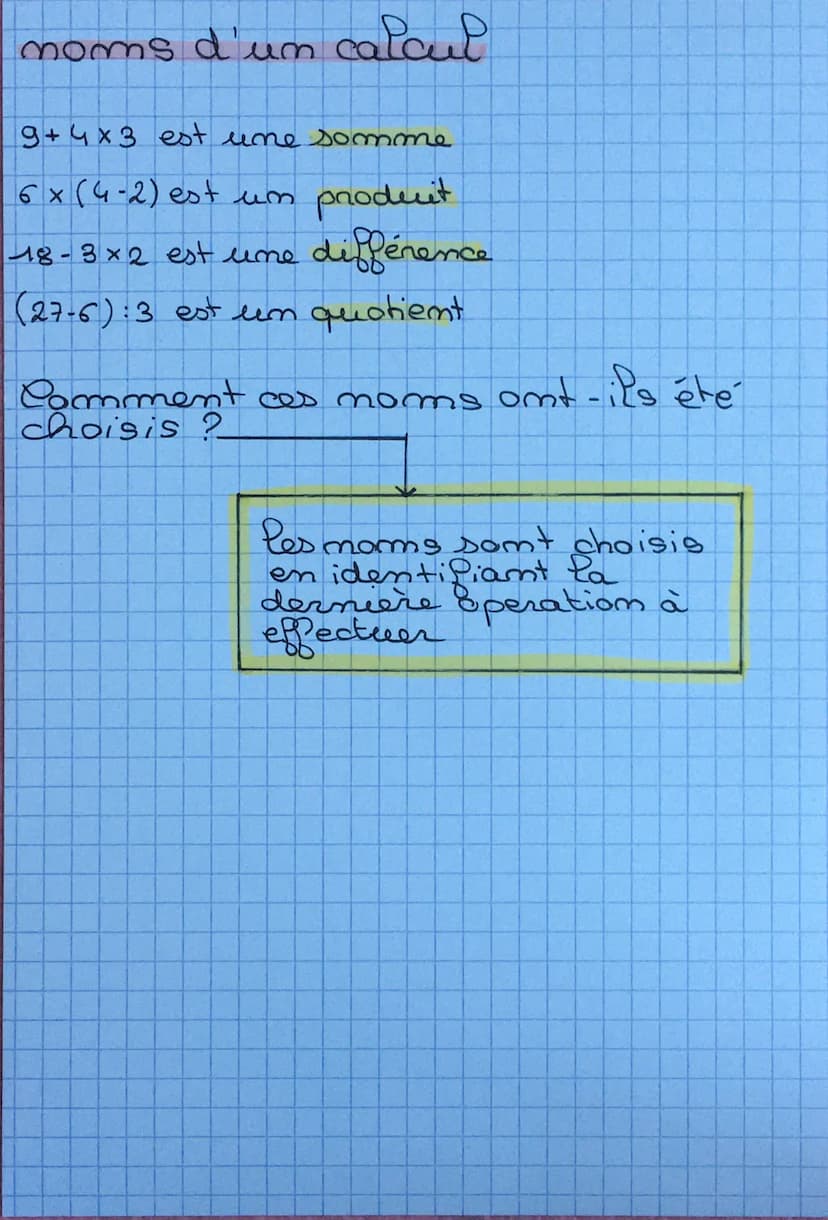 noms d'un calcul
9 + 4 × 3 est une somme
6 × (4 - 2) est un produit
18 - 3 × 2 est une différence
(27 - 6) : 3 est un quotient
Comment ces noms ont-ils été
choisis ?
les noms sont choisis
en identifiant la
dernière operation à
effectuer